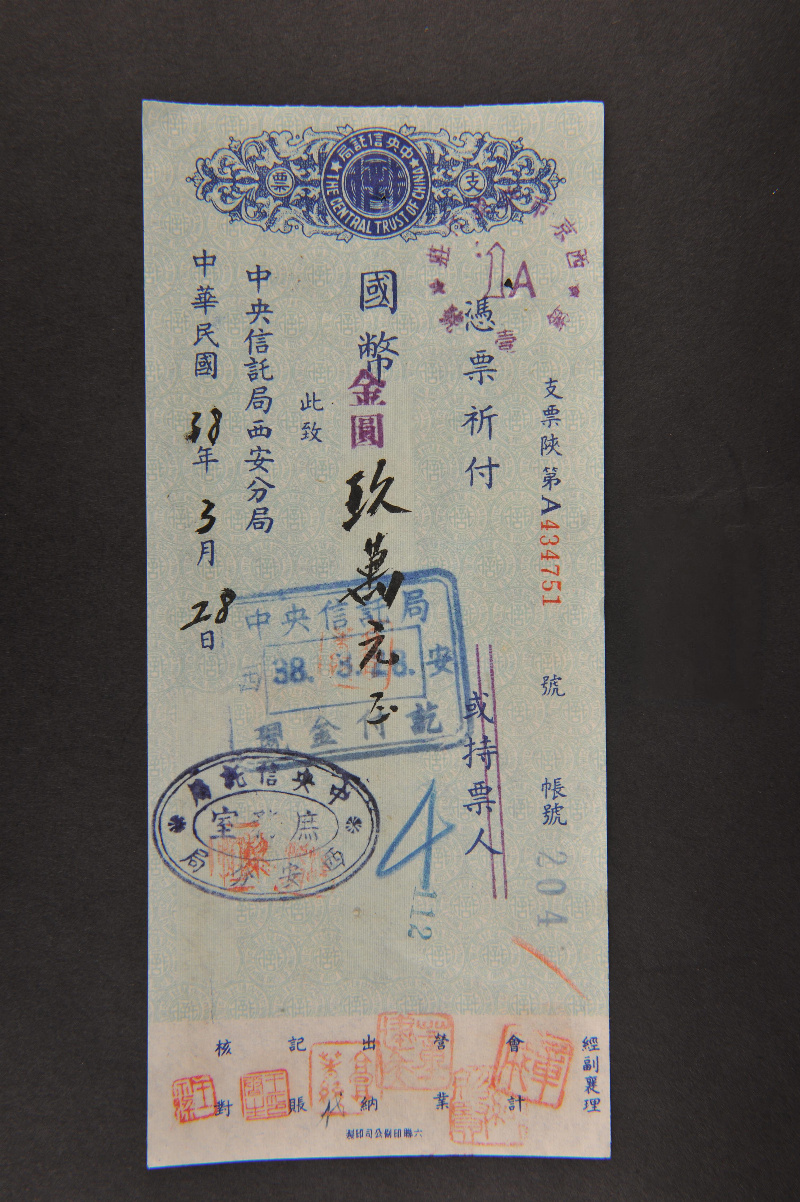 中央信託局
THE CENTRAL TRUST OF CHINA
支票
西京市
1A
壹
支票陝第A434751號 帳號 204
憑票祈付 或持票人
國幣金圓玖萬元正
此致
中央信託局西安分局
中華民國38年3月28日
中央信託局
西 38. 3. 28. 安
現金付訖
中央信託局
庶務室
西安分局
4
112
經副襄理
會計
營業
出納
代
記賬
核對
六聯印刷公司印製